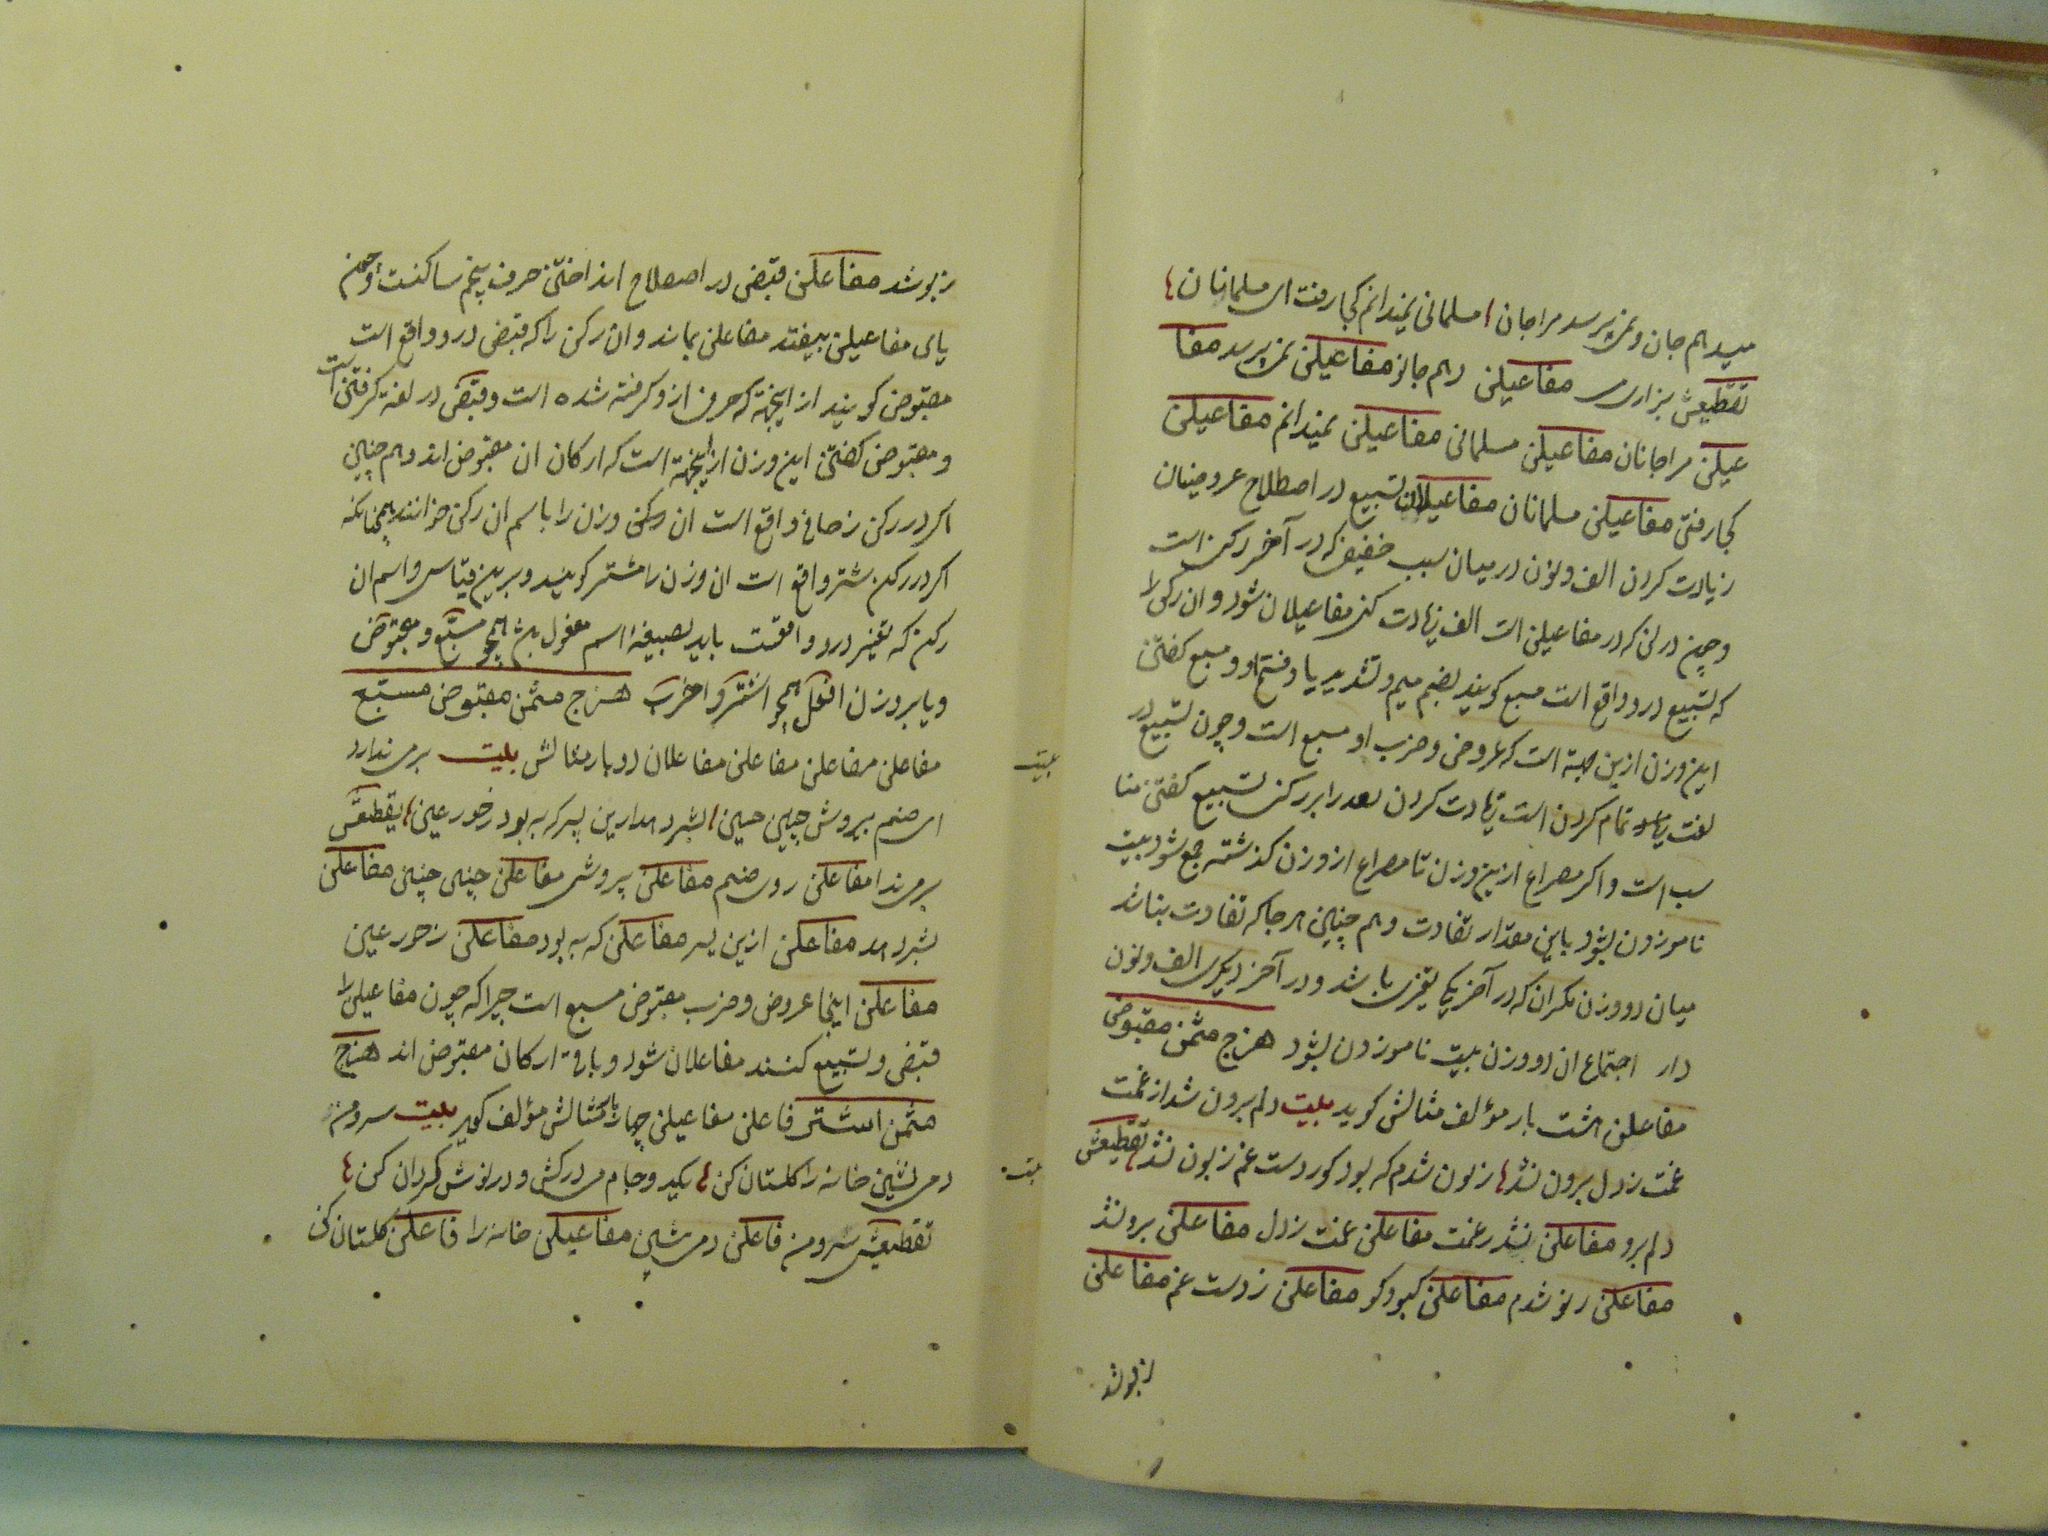 میدهم جان و نمی پرسد مرا جان مسلمانی نمیدانم کجا رفت ای مسلمانان
تقطیعش بزاری می مفاعیلن دهم جانو مفاعیلن نمی پرسد مفا
عیلن مرا جانان مفاعیلن مسلمانی مفاعیلن نمیدانم مفاعیلن
کجا رفتی مفاعیلن مسلمانان مفاعیلان تسبیغ در اصطلاح عروضیان
زیادت کردن الف و نون در میان سبب خفیف که در آخر رکن است
و چون در لن که در مفاعیلن است الف زیادت کنی مفاعیلان شود و ان رکن را
که تسبیع درو واقع است مسبع کویند بضم میم و تشدید با و فتح او و مسبع کفتن
این وزن ازین جهة است که عروض و ضرب او مسبع است و چون تسبیع در
لغت تمام کردن است زیادت کردن بر رکن تسبیع کفتن منا
سب است و اکر مصراع ازین وزن تا مصراع از وزن کذشته جمع شود بیت
ناموزون نشود باین مقدار تفاوت و هم چنین هر جا که تفاوت نباشد
میان دو وزن مکر ان که در آخر یکی باشد و در آخر دیکری الف و نون
دار اجتماع ان دو وزن بیت ناموزون نشود هزج مثمن مقبوض
مفاعلن هشت بار مؤلف مثالش کوید بیت دلم برون شد از غمت
غمت ز دل برون نشد زبون شدم که بود کو ز دست غم زبون نشد تقطیعش
دلم برو مفاعلن نشد زغمت مفاعلن غمت ز دل مفاعلن برو نشد
مفاعلن زبو شدم مفاعلن کبود کو مفاعلن ز دست غم مفاعلن
زبو شد
زبو شد مفاعلن قبض در اصطلاح انداختن حرف پنجم ساکنست و چون
یای مفاعیلن بیفتد مفاعلن بماند و ان رکن را که قبض درو واقع است
مقبوض کویند از اینجهة که حرف ازو کرفته شده است و قبض در لغة کرفتن است
و مقبوض کفتن این وزن از اینجهة است که ارکان ان مقبوض اند و هم چنین
اکر در رکن زحافی واقع است ان وزن را باسم ان رکن خوانند همچنانکه
اکر در رکن شتر واقع است ان وزن را اشتر کویند و برین قیاس و اسم ان
رکن که تغییر درو واقعست باید بصیغهٔ اسم مفعول باشد همچو مسبّع و مقبوض
و یا بر وزن افعل همچو اشتر و اخرب هزج مثمن مقبوض مسبّع
مفاعلن مفاعلن مفاعلن مفاعلان دو بار مثالش بیت پری ندارد
ای صنم بروش چنین حسین بشر نداد ازین پسر که به بود ز حور عین تقطیعش
پری ندا مفاعلن روی صنم مفاعلن بروش مفاعلن چنین چنین مفاعلن
بشر نداد مفاعلن ازین پسر مفاعلن که به بود مفاعلن ز حور عین
مفاعلن اینجا عروض و ضرب مقبوض مسبع است چرا که چون مفاعیلن را
قبض و تسبیع کنند مفاعلان شود و باقی ارکان مقبوض اند هزج
مثمن اشتر فاعلن مفاعیلن چهار بار مثالش مؤلف کوید بیت سرو من
دمی بنشین خانه را کلستان کن یکید و جام می درکش و در نوش کردان کن
تقطیعش سرو من فاعلن دمی بنشین مفاعیلن خانه را فاعلن کلستان کن
بیت
بیت